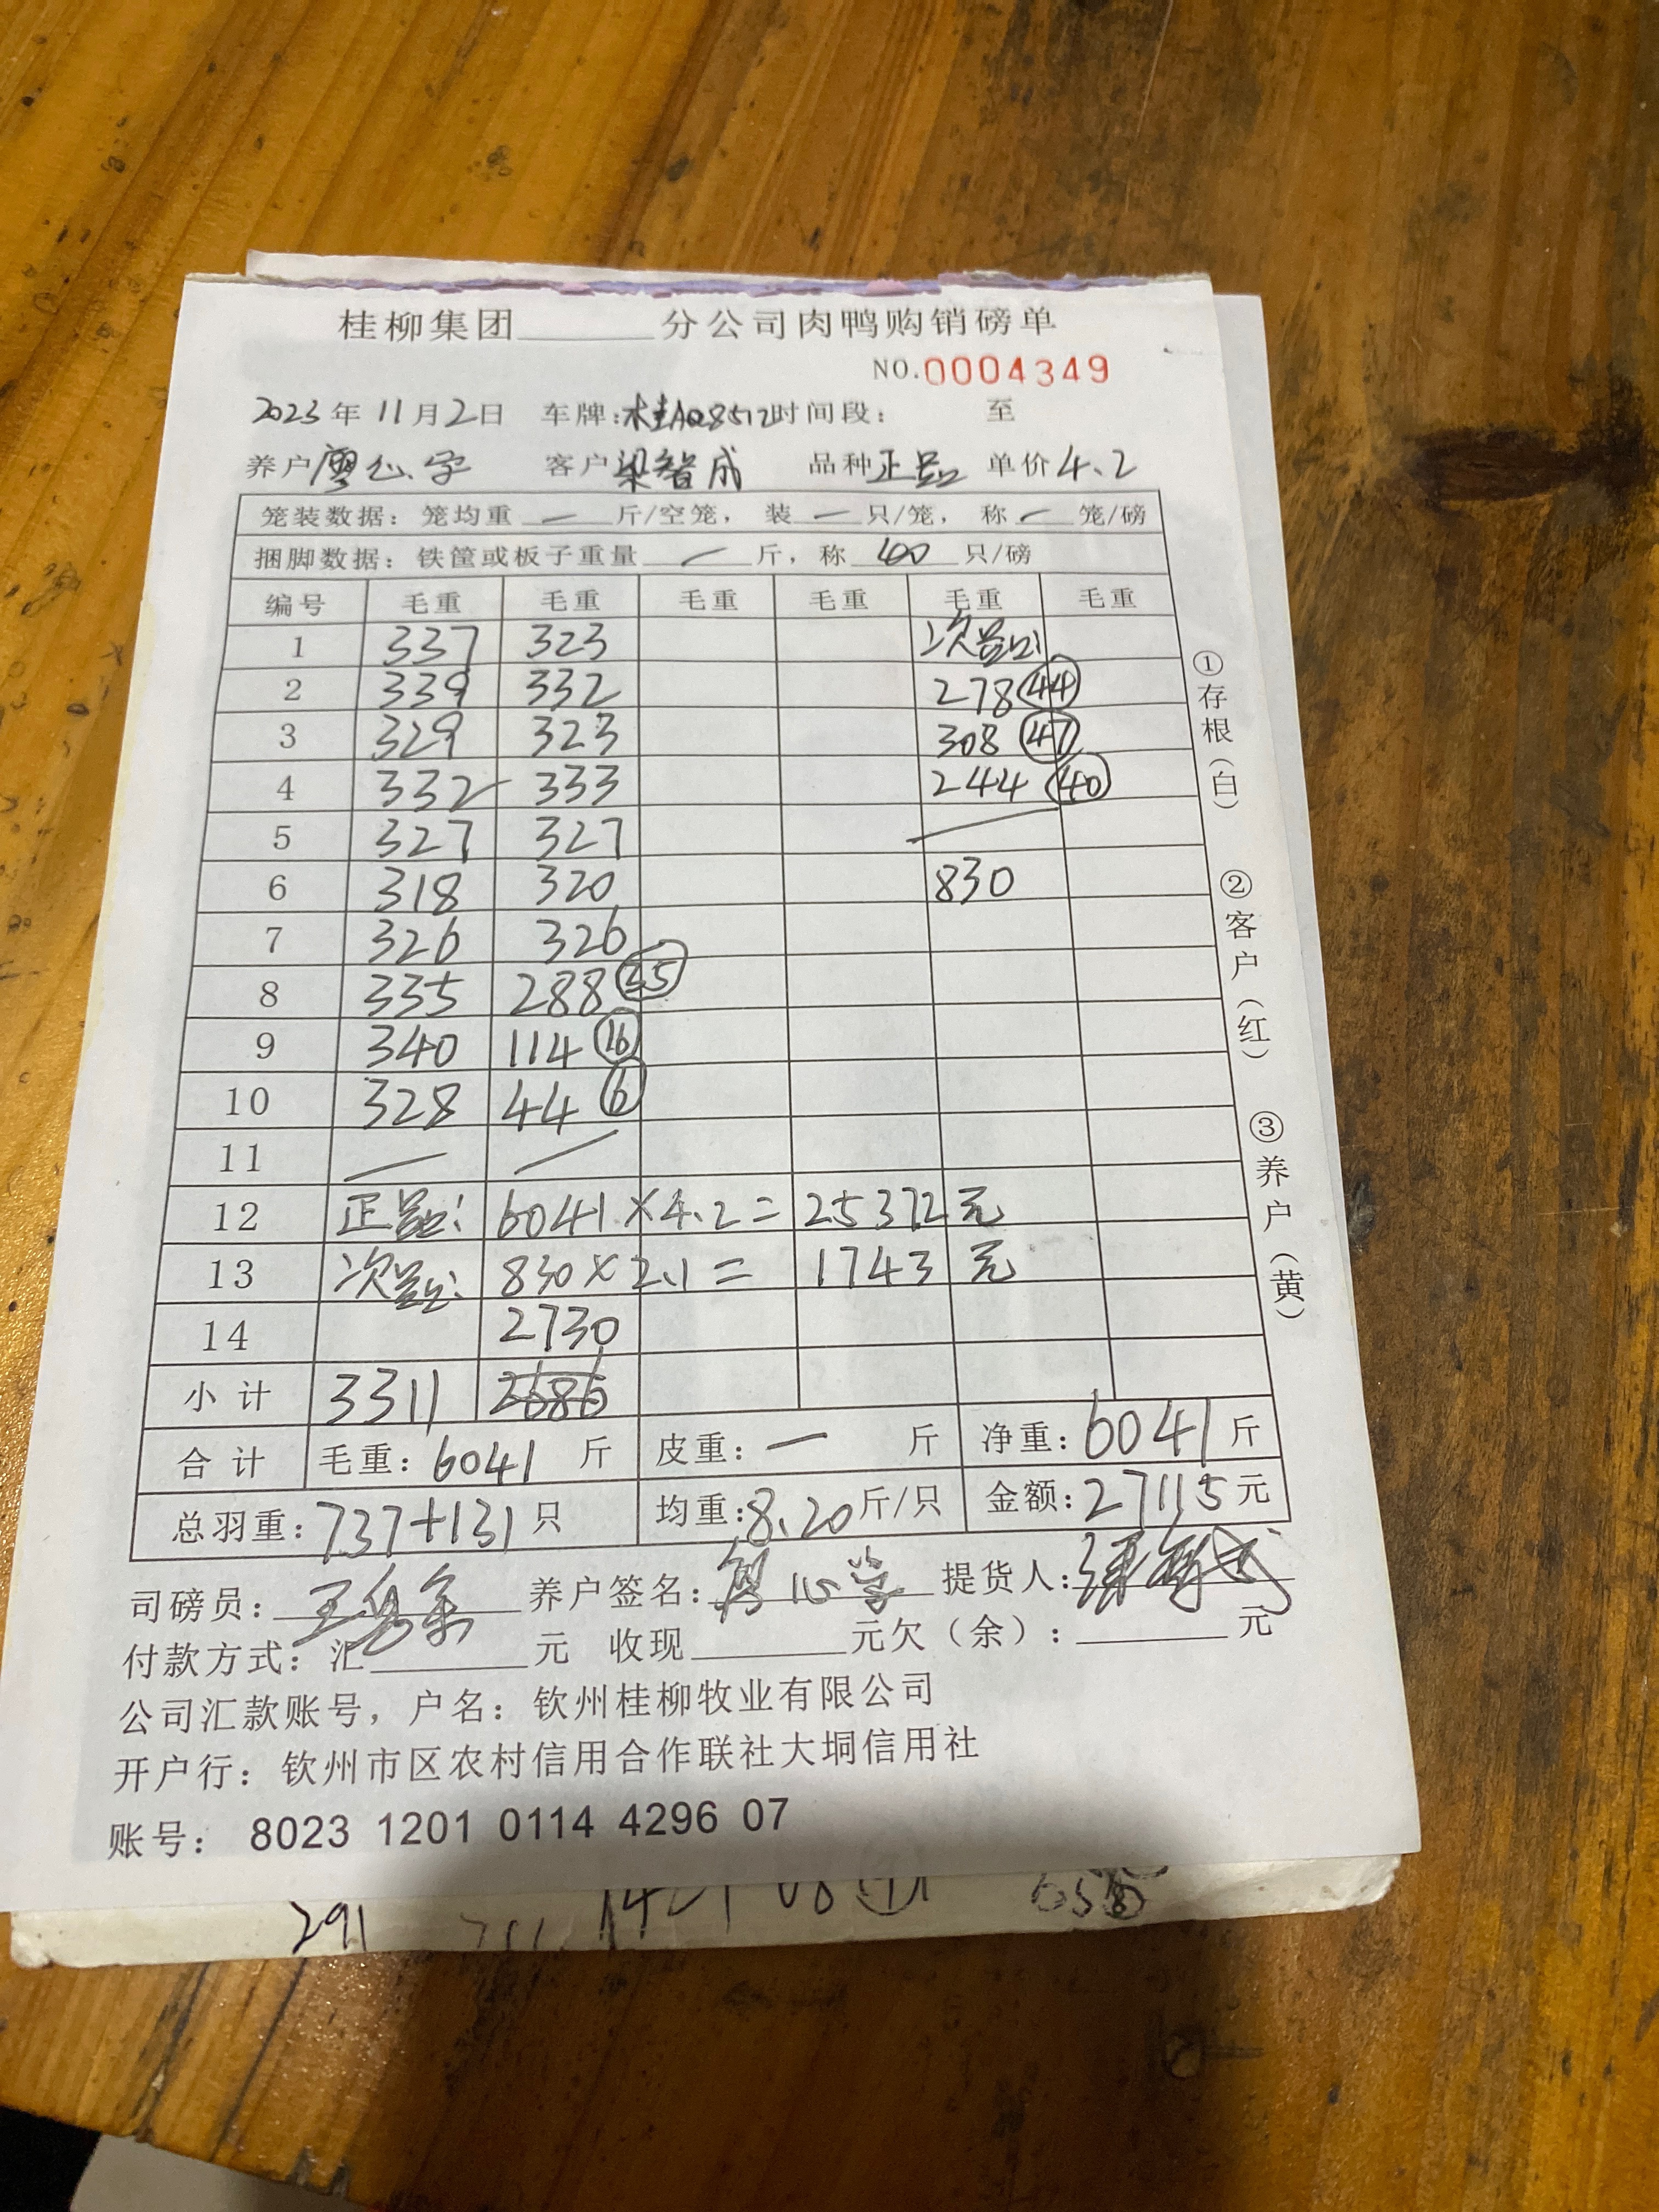 桂柳集团______分公司肉鸭购销磅单
NO.0004349
2023年11月2日 车牌:桂A08512时间段: 至
养户廖心字 客户梁智成 品种正品 单价4.2
笼装数据:笼均重 — 斤/空笼, 装 — 只/笼, 称 — 笼/磅
捆脚数据:铁筐或板子重量 — 斤,称 40 只/磅
编号 毛重 毛重 毛重 毛重 毛重 毛重
1 337 323 次品:
2 339 332 278 44
3 329 323 308 47
4 332 333 244 40
5 327 327
6 318 320 830
7 326 326
8 335 288 35
9 340 114 16
10 328 44 6
11
12 正品: 6041×4.2= 25372元
13 次品: 830×2.1= 1743元
14 2730
小计 3311 2686
合计 毛重:6041 斤 皮重:— 斤 净重:6041斤
总羽重:737+131只 均重:8.20斤/只 金额:27115元
司磅员: 养户签名: 提货人:
付款方式:汇______元 收现______元欠(余):______元
公司汇款账号,户名:钦州桂柳牧业有限公司
开户行:钦州市区农村信用合作联社大垌信用社
账号: 8023 1201 0114 4296 07
①存根(白) ②客户(红) ③养户(黄)
291